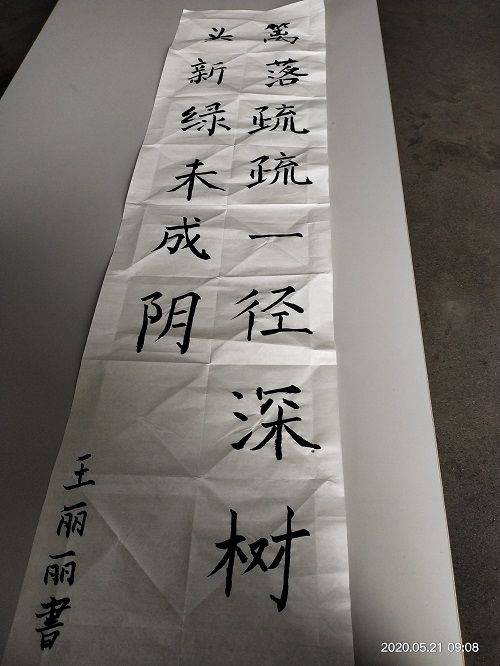 篱落疏疏一径深树
头新绿未成阴
王丽丽書
2020.05.21 09:08